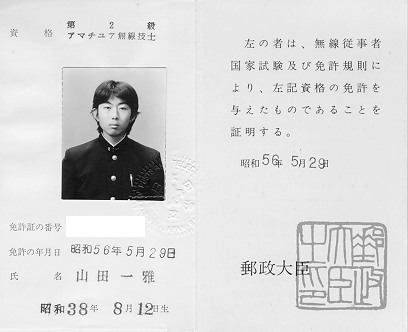 資格 第2級
アマチユア無線技士
免許証の番号
免許の年月日 昭和56年5月29日
氏名 山田一雅
昭和38年8月12日生
左の者は、無線従事者
国家試験及び免許規則に
より、左記資格の免許を
与えたものであることを
証明する。
昭和56年5月29日
郵政大臣